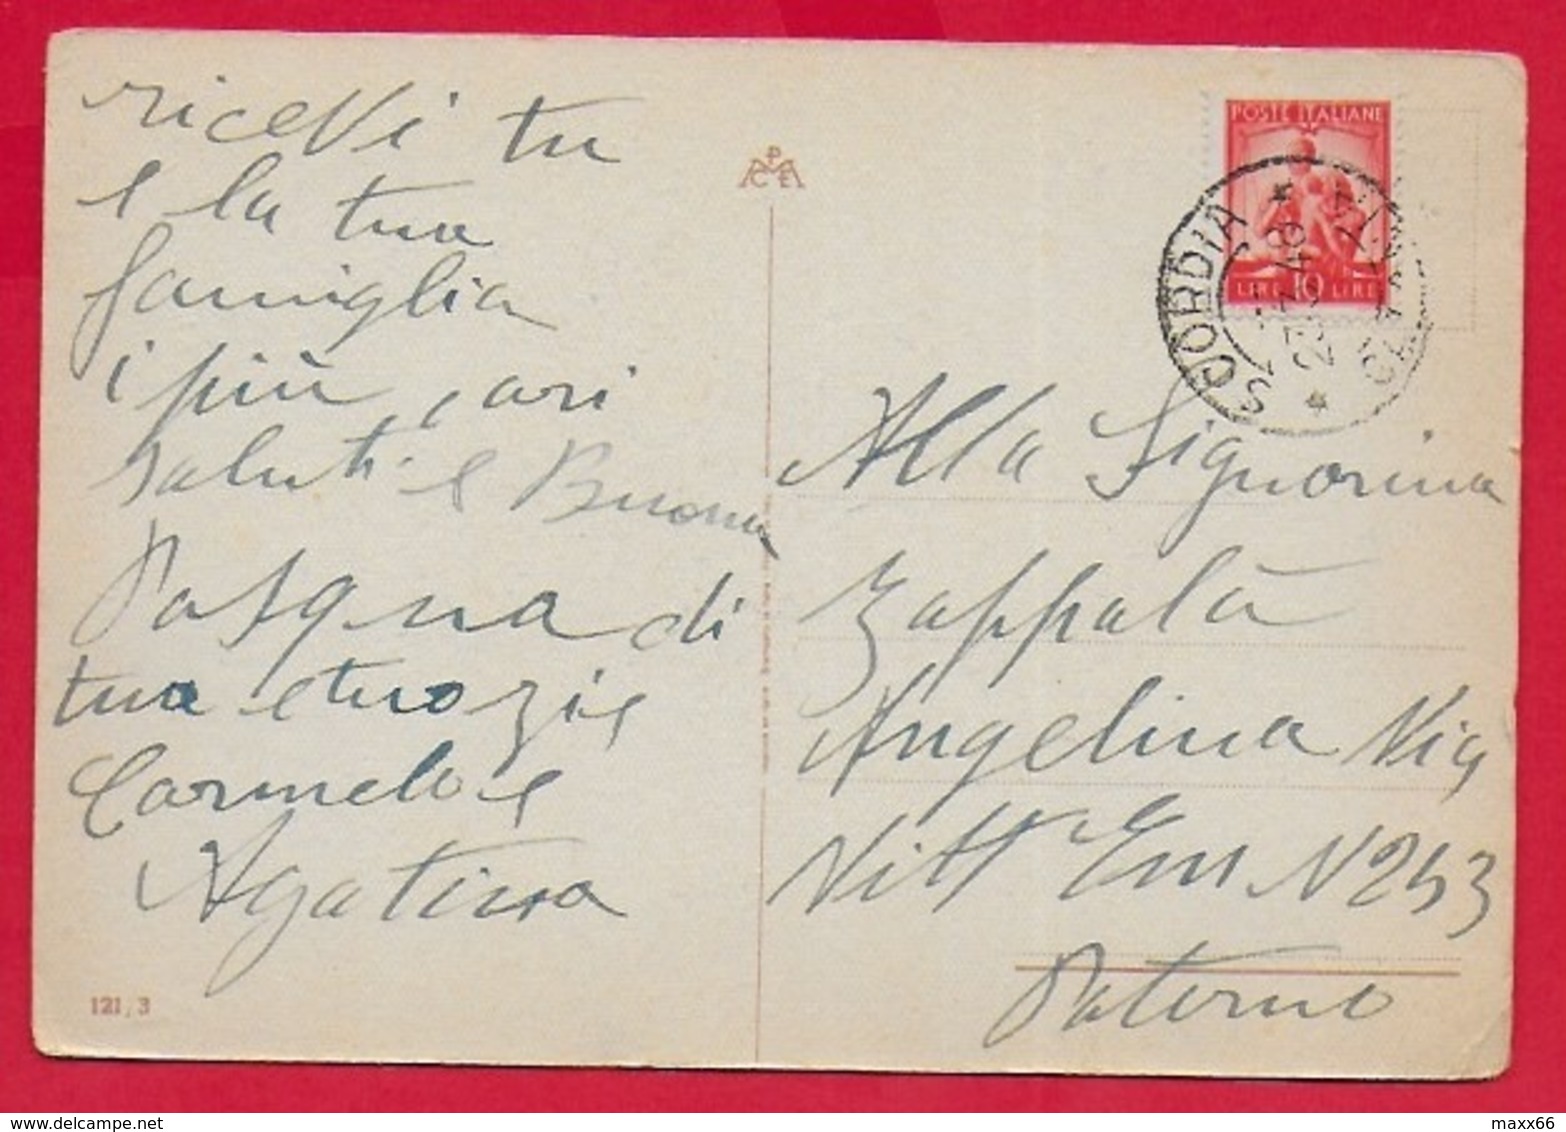 ricevi tu
e la tua
famiglia
i più cari
saluti e Buona
Pasqua di
tua e tuo zie
Carmelo e
Agatina
121, 3
P
C E
POSTE ITALIANE
LIRE 10 LIRE
SCORDIA
48
Alla Signorina
Zappalà
Angelina Via
Vitt Em N 253
Paterno
maxx66
delcampe.net